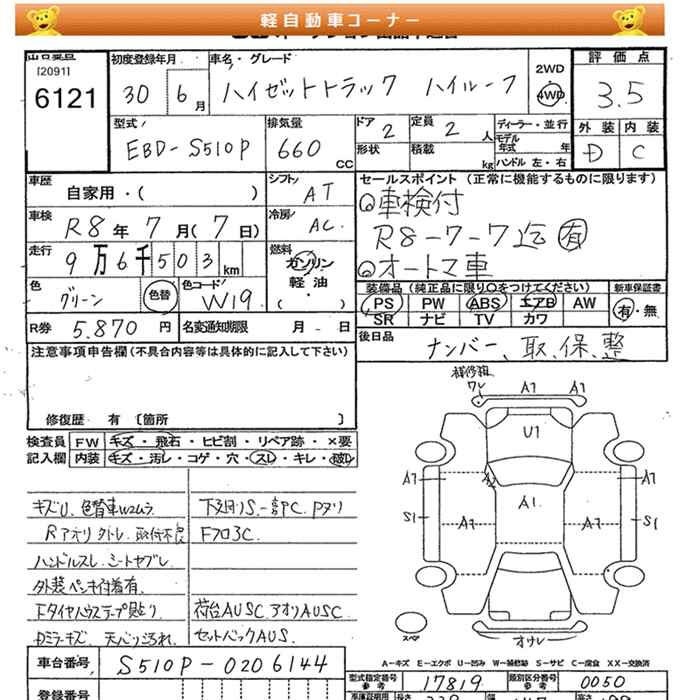 軽自動車コーナー
出品番号
[2091]
6121
初度登録年月
30 6月
車名・グレード
ハイゼットトラック ハイルーフ
2WD
4WD
評価点
3.5
型式
EBD-S510P
排気量
660 CC
ドア 2
定員 2人
形状
積載 kg
ディーラー・並行
モデル年式 年
ハンドル 左・右
外装 内装
D C
車歴 自家用・( )
シフト AT
セールスポイント(正常に機能するものに限ります)
◎車検付
R8-7-7迄 有
◎オートマ車
車検 R8年 7月(7日)
冷房 AC
走行 9万6千503km
燃料 ガソリン
軽油
( )
色 グリーン 色替
色コード W19
装備品(純正品に限り○をつけてください)
新車保証書
PS PW ABS エアB AW
有・無
SR ナビ TV カワ
R券 5.870円
名変通知期限 月 日
後日品
ナンバー、取、保、整
注意事項申告欄(不具合内容等は具体的に記入して下さい)
修復歴 有 〔箇所 〕
検査員記入欄
FW キズ・飛石・ヒビ割・リペア跡・×要
内装 キズ・汚レ・コゲ・穴・スレ・キレ・破レ
キズU、色替車Wムラ
Rアオリ 取付不良
ハンドルスレ シートヤブレ
外装ペンキ付着有
テープ貼り
キズ、天バリ汚れ
下廻りS、
F フロ3C
荷台AUSC アオリAUSC
セットバックAUS
A1 A1
U1
A1 A2 A1
S1 A1 A1 A1 S1
スペア
A-キズ E-エクボ U-凹み W-補修跡 S-サビ C-腐食 XX-交換済
車台番号 S510P-0206144
型式指定番号 17819
類別区分番号 0050
登録番号